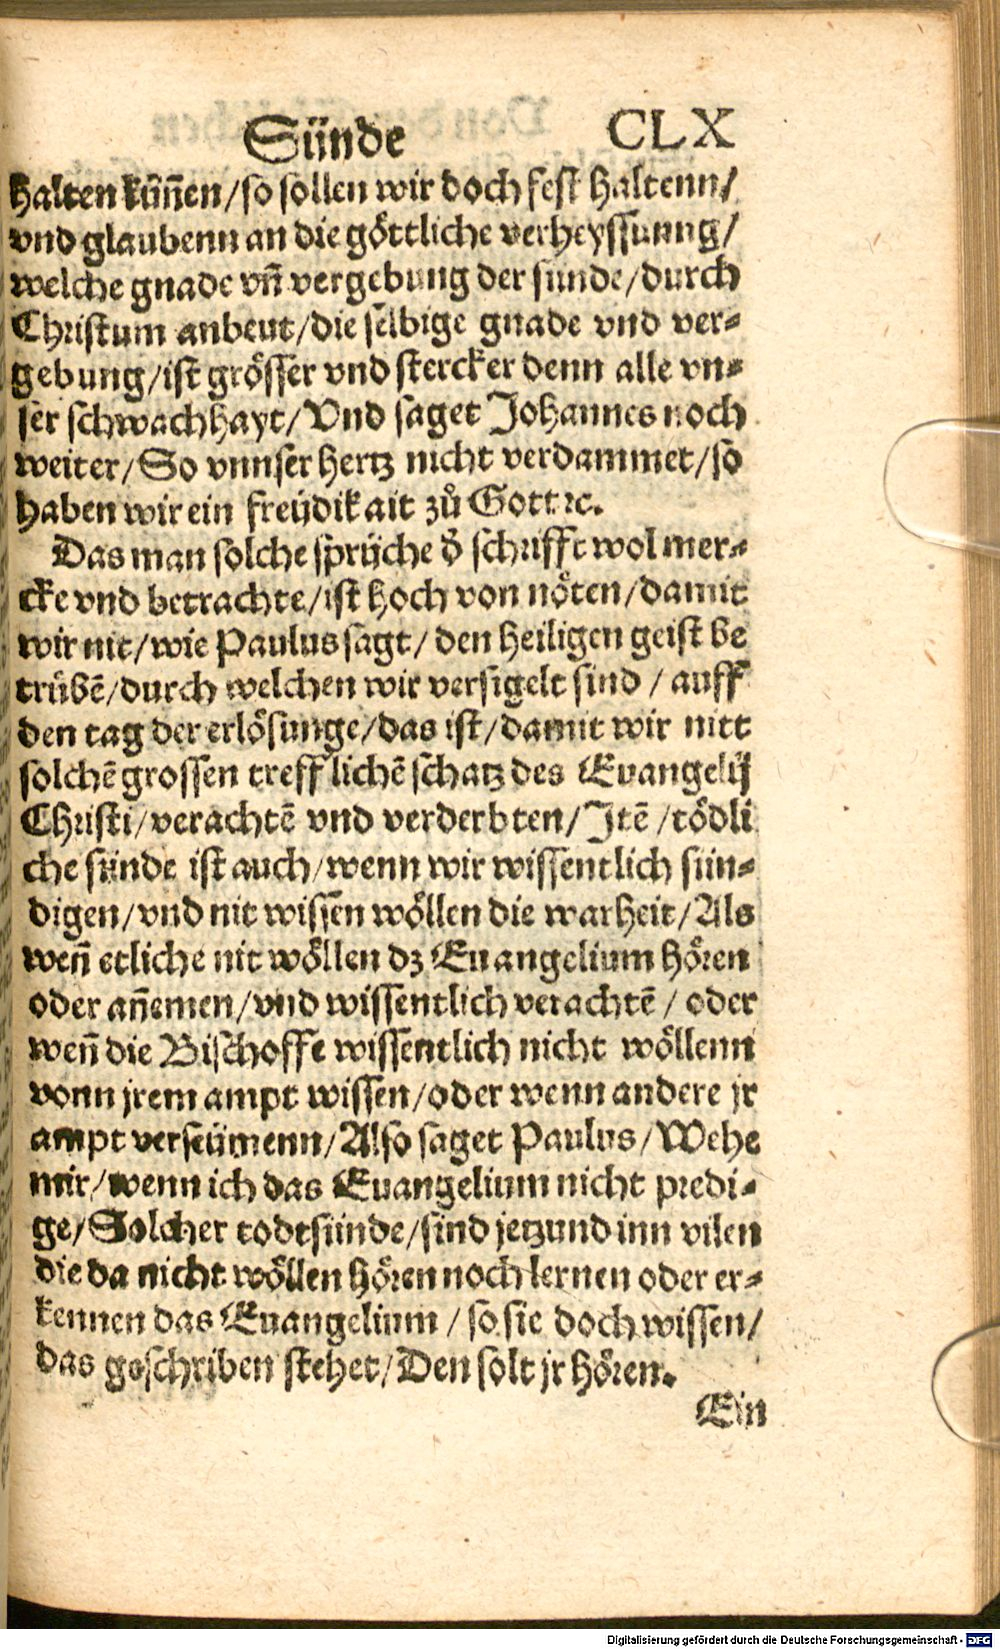 Sünde CLX
halten künñen/so sollen wir doch fest haltenn/
vnd glaubenn an die göttliche verheyssunng/
welche gnade vñ vergebung der sunde/durch
Christum anbeut/die selbige gnade vnd ver⸗
gebung/ist grösser vnd stercker denn alle vn⸗
ser schwachhayt/Vnd saget Johannes noch
weiter/So vnnser hertz nicht verdammet/so
haben wir ein freijdikait zů Gott ꝛc.
Das man solche sprüche d̃ schrifft wol mer⸗
cke vnd betrachte/ist hoch von nöten/damit
wir nit/wie Paulus sagt/den heiligen geist be
trübẽ/durch welchen wir versigelt sind/auff
den tag der erlösunge/das ist/damit wir nitt
solchẽ grossen trefflichẽ schatz des Euangelij
Christi/verachtẽ vnd verderbten/Jtẽ/tödli
che sünde ist auch/wenn wir wissentlich sün⸗
digen/vnd nit wissen wöllen die warheit/Als
weñ etliche nit wöllen dz Euangelium hören
oder añemen/vnd wissentlich verachtẽ/oder
weñ die Bischoffe wissentlich nicht wöllenn
vonn jrem ampt wissen/oder wenn andere jr
ampt verseümenn/Also saget Paulus/Wehe
mir/wenn ich das Euangelium nicht predi⸗
ge/Solcher todtsünde/sind jetzund inn vilen
die da nicht wöllen hören noch lernen oder er⸗
kennen das Euangelium/so sie doch wissen/
das geschriben stehet/Den solt jr hören.
Ein
Digitalisierung gefördert durch die Deutsche Forschungsgemeinschaft - DFG